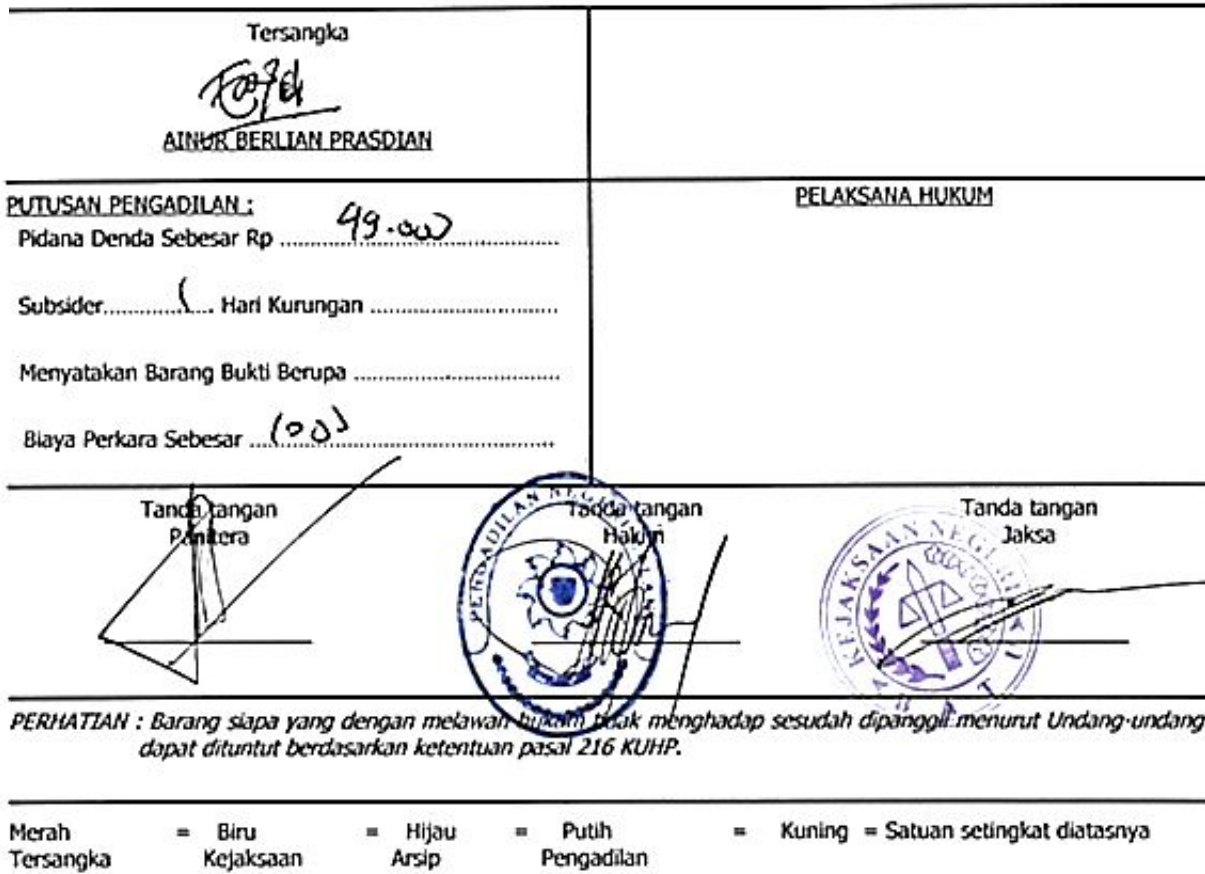 Tersangka
AINUR BERLIAN PRASDIAN
PUTUSAN PENGADILAN :
Pidana Denda Sebesar Rp ..... 49.000 .....
Subsider.......... 1 .... Hari Kurungan ..........
Menyatakan Barang Bukti Berupa ..........
Biaya Perkara Sebesar .... 1000 ..........
PELAKSANA HUKUM
Tanda tangan
Panitera
Tanda tangan
Hakim
Tanda tangan
Jaksa
PENGADILAN NEGERI
KEJAKSAAN NEGERI
PERHATIAN : Barang siapa yang dengan melawan hukum tidak menghadap sesudah dipanggil menurut Undang-undang
dapat dituntut berdasarkan ketentuan pasal 216 KUHP.
Merah = Biru = Hijau = Putih = Kuning = Satuan setingkat diatasnya
Tersangka Kejaksaan Arsip Pengadilan